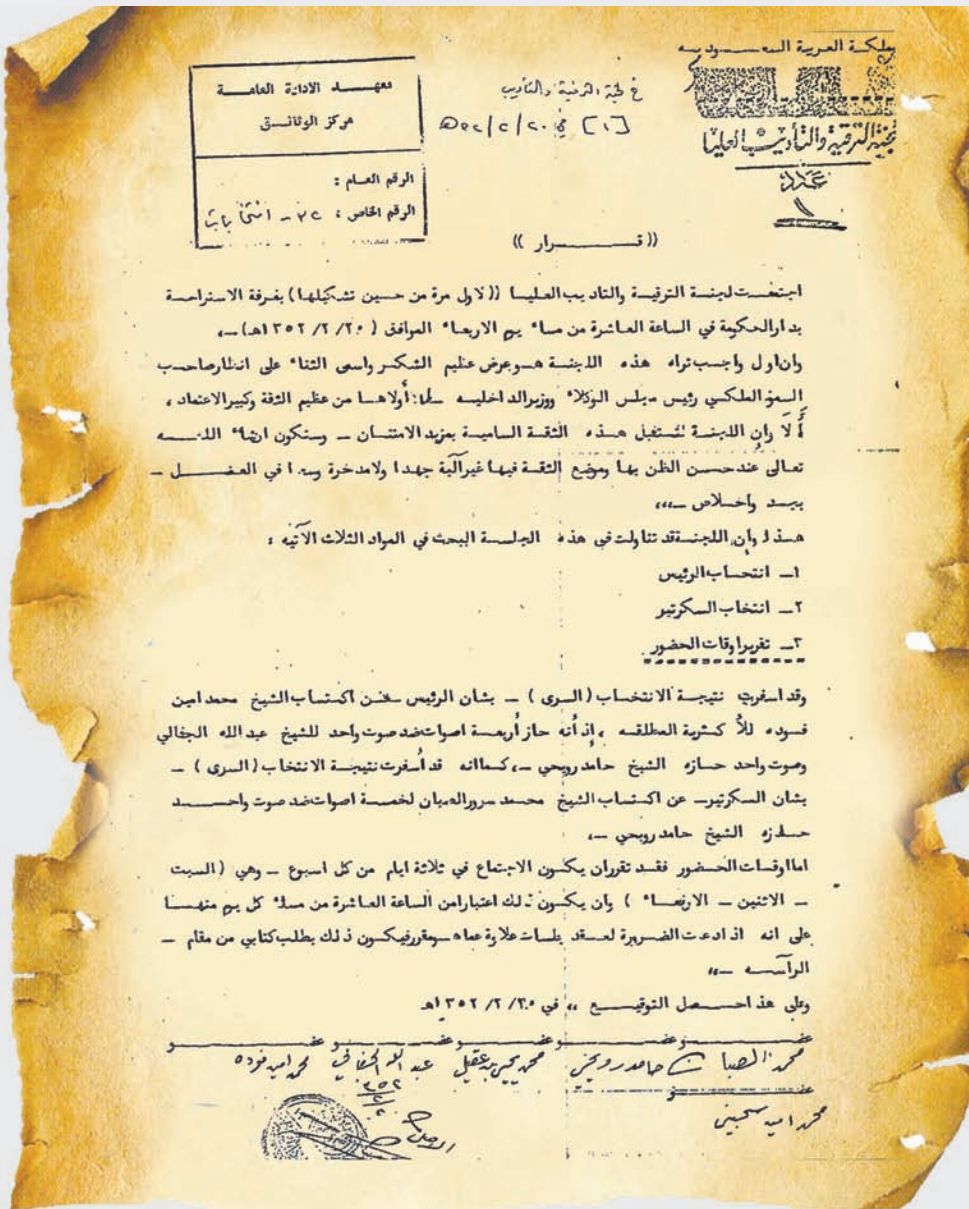 المملكة العربية السعوديه
لجنة الترقية والتأديب العليا
عدد
١
في لجنة الترقية والتأديب
[١] في ٢٠/٢/٥٢هـ
معهد الادارة العامة
مركز الوثائق
الرقم العام :
الرقم الخاص : ٣٢ - انتخابات
(( قرار ))
اجتمعت لجنة الترقية والتاديب العليا (( لاول مرة من حسين تشكيلها ) بغرفة الاستراحة
بدار الحكومة في الساعة العاشرة من مساء يوم الاربعاء الموافق ( ١٣٥٢/٢/٢٠هـ) ـ،
وان اول واجب تراه هذه اللجنة هو عرض عظيم الشكر واسمى الثناء على انظار صاحب
السمو الملكي رئيس مجلس الوكلاء ووزير الداخليه ـ لما: أولاها من عظيم الثقة وكبير الاعتماد ،
ألا وإن اللجنة لتستقبل هذه الثقة السامية بمزيد الامتنان ـ وستكون انشاء اللـه
تعالى عند حسن الظن بها وموضع الثقة فيها غير آلية جهدا ولا مدخرة وسعا في العمل ـ
بجد واخلاص ـ،،،
هذا وإن اللجنة قد تناولت في هذه الجلسة البحث في المواد الثلاث الآتيه :
١ـ انتحساب الرئيس
٢ـ انتخاب السكرتير
٣ـ تقرير اوقات الحضور
وقد اسفرت نتيجة الانتخاب ( السرى ) ـ بشان الرئيس ـ عن اكتساب الشيخ محمد امين
فوده للأكثرية المطلقه ، إذ أنه حاز أربعة اصوات ضد صوت واحد للشيخ عبد الله الجفالي
وصوت واحد حازه الشيخ حامد رويحي ـ، كما انه قد أسفرت نتيجة الانتخاب ( السرى ) ـ
بشان السكرتير ـ عن اكتساب الشيخ محمد سرور الصبان لخمسة اصوات ضد صوت واحد
حازه الشيخ حامد رويحي ـ،
اما اوقات الحضور فقد تقرر ان يكون الاجتماع في ثلاثة ايام من كل اسبوع ـ وهي ( السبت
ـ الاثنين ـ الاربعاء ) وان يكون ذلك اعتبارا من الساعة العاشرة من مساء كل يوم منها
على انه اذا دعت الضرورة لعقد جلسات علاوة عما هو مقرر فيكون ذلك بطلب كتابي من مقام ـ
الرآسه ـ،،
وعلى هذا حصل التوقيع ،، في ١٣٥٢/٢/٢٠هـ
عضو عضو عضو عضو عضو
محمد الصبان حامد رويحي محمد يحيى بن عقيل عبد الله الجفالي محمد امين فوده
عضو
محمد امين